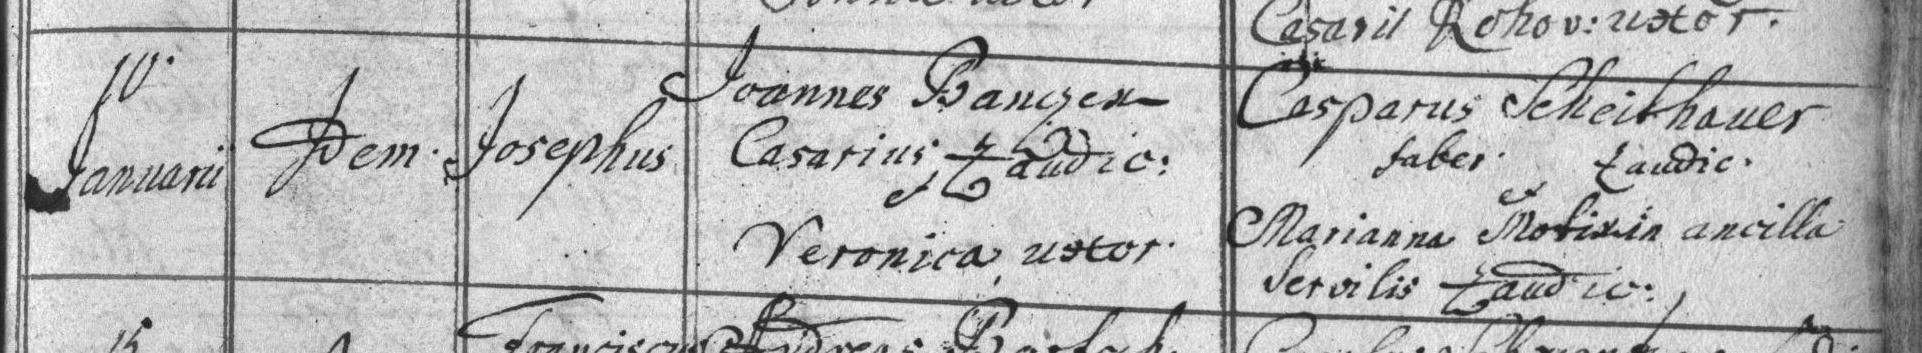 Casarii Rohov: uxor.
10.
Januarii
Idem.
Josephus
Joannes Banczen
Casarius Zaudic:
et
Veronica uxor.
Casparus Scheithauer
faber. Zaudic.
et
Marianna Motixin ancilla
servilis Zaudic:
15
Franciscus
Andreas